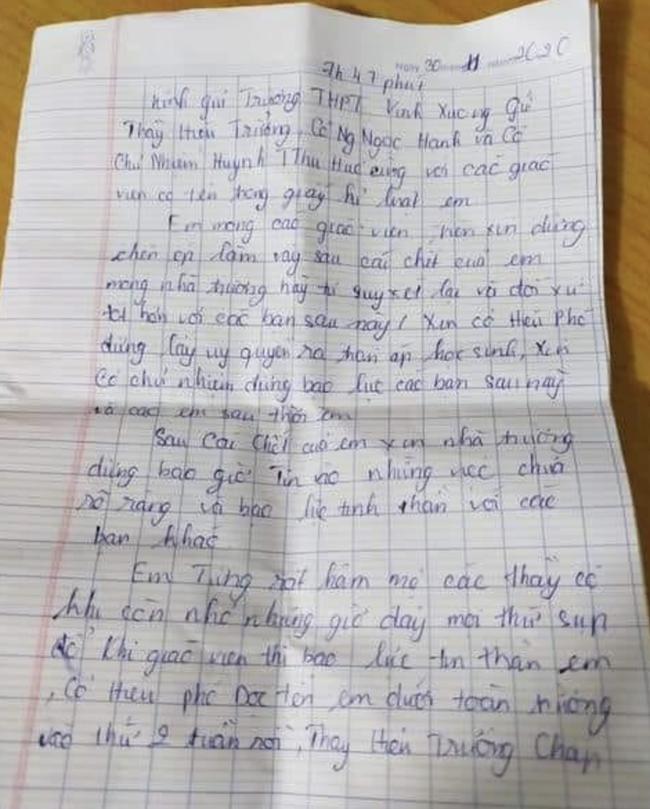 7h 47 phút ngày 30 11 2020
Kính gửi Trường THPT Vĩnh Xương Gửi
Thầy Hiệu Trưởng, Cô Ng Ngọc Hạnh và Cô
Chủ Nhiệm Huỳnh T Thu Huệ cùng với các giáo
viên có tên trong giấy kỉ luật em
Em mong các giáo viên, xin đừng
chèn ép lắm vậy sau cái chết của em
mong nhà trường hãy suy xét lại và đối xử
tốt hơn với các bạn sau này! Xin cô Hiệu Phó
đừng lấy uy quyền ra chèn ép học sinh, xin
cô chủ nhiệm đừng bạo lực các bạn sau này
và các em sau thời em
Sau cái chết của em xin nhà trường
đừng bao giờ Tin vào những việc chưa
rõ ràng và bạo lực tinh thần với các
bạn khác
Em Từng rất hâm mộ các thầy cô
khi còn nhỏ nhưng giờ đây mọi thứ sụp
đổ Khi giáo viên thì bạo lực tin thần em
, Cô Hiệu phó Đọc tên em dưới toàn trường
vào thứ 2 tuần rồi, Thầy Hiệu Trưởng Chấp